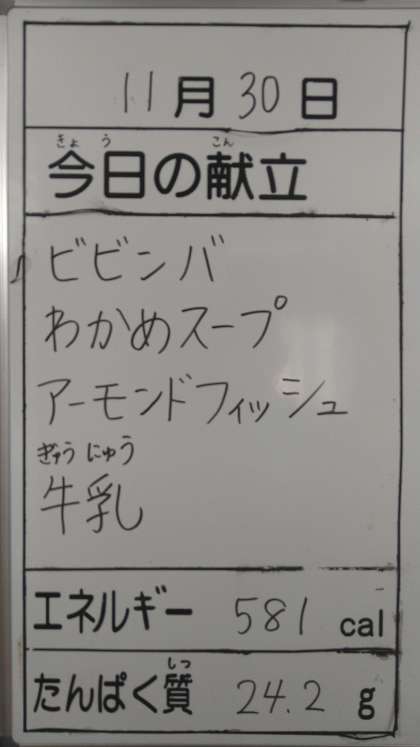 11月30日
きょう こん
今日の献立
ビビンバ
わかめスープ
アーモンドフィッシュ
ぎゅうにゅう
牛乳
エネルギー 581 cal
しつ
たんぱく質 24.2 g